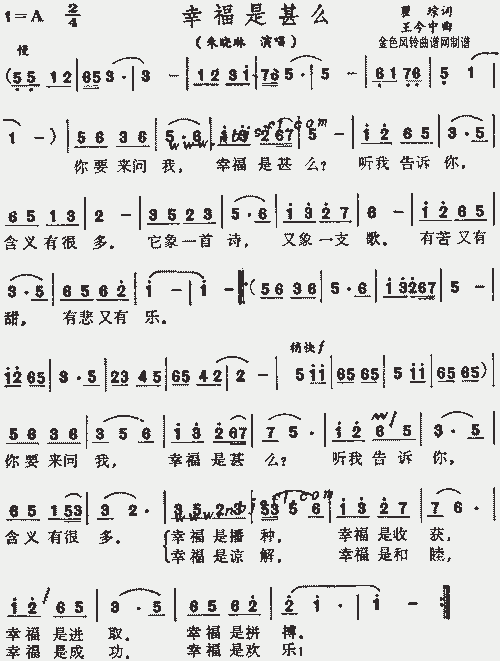 1=A 2/4 幸福是甚么 瞿琮词
王今中曲
慢 (朱晓琳 演唱) 金色风铃曲谱网制谱
(5 5 1 2 | 6 5 3 · | 3 — | 1 2 3 i | 7 6 5 · | 5 — | 6 1 7 6 | 5 —
1 — ) | 5 6 3 6 | 5 · 6 | i 3 2 6 7 | 5 — | i 2 6 5 | 3 · 5 |
你要来问我, 幸福是甚么? 听我告诉你,
6 5 1 3 | 2 — | 3 5 2 3 | 5 · 6 | i 3 2 7 | 6 — | i 2 6 5 |
含义有很多。 它象一首诗, 又象一支歌。 有苦又有
3 · 5 | 6 5 6 2 | i — | i — :( 5 6 3 6 | 5 · 6 | i 3 2 6 7 | 5 — |
甜, 有悲又有乐。
稍快 f
i 2 6 5 | 3 · 5 | 2 3 4 5 | 6 5 4 2 | 2 — | 5 i i | 6 5 6 5 | 5 i i | 6 5 6 5 ) |
5 6 3 6 | 3 5 6 | i 3 2 6 7 | 7 5 · | i 2 6 5 | 3 · 5 |
你要来问我, 幸福是甚么? 听我告诉你,
6 5 1 5 3 | 3 2 · | 3 5 2 3 | 5 3 5 6 | i 3 2 7 | 7 6 · |
含义有很多。 幸福是播种, 幸福是收获,
幸福是谅解, 幸福是和睦,
i 2 6 5 | 3 · 5 | 6 5 6 2 | 2 i · | i — :|
幸福是进取。 幸福是拼搏。
幸福是成功。 幸福是欢乐!